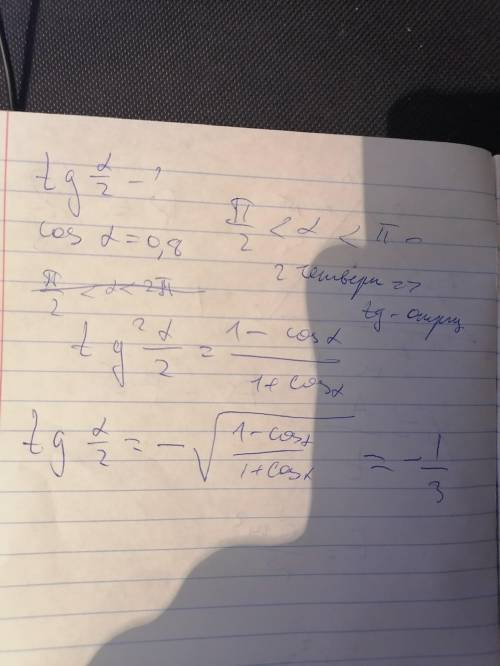 tg α/2 - ?
cos α = 0,8
π/2 < α < π -
2 четверти =>
tg - отриц
π/2 < α < 2π
tg² α/2 = (1 - cos α)/(1 + cos α)
tg α/2 = - √((1 - cos α)/(1 + cos α)) = - 1/3